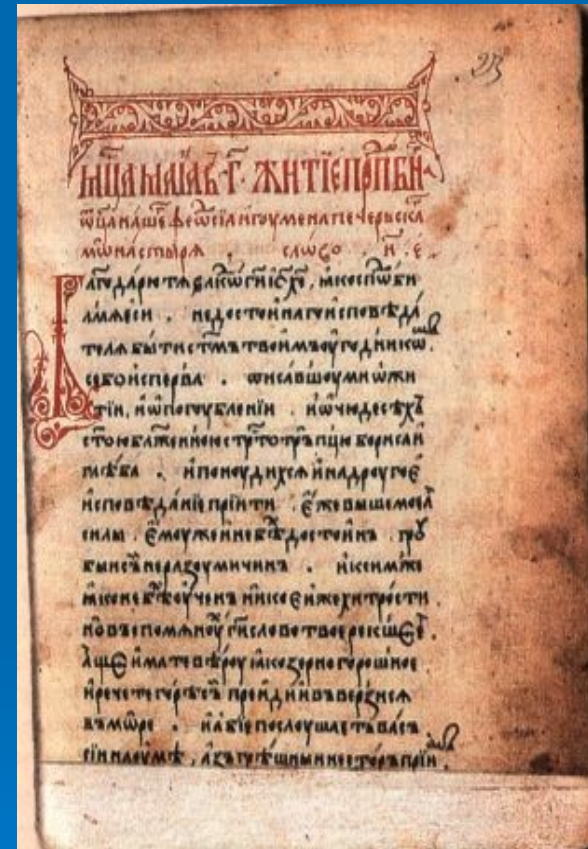 мц҃а маїа въ · г҃ · житїе прп҃бн
ѡц҃а нашеⷢ ѳеѡсїа игоумена печерьскаⷢ
мѡнастырѧ . слѡво . н҃ : е
лагодарю тѧ влⷣко гⷭ҇и і҃с х҃е , ꙗко сподоби
лъ мѧ еси . недостойнаго исповѣда
телѧ быти ст҃мъ твоимъ оугодникѡⷨ .
се бо исперва . писавшоу ми ѡ жи
тїи , и ѡ погоублении . и ѡ чюдесѣхъ
ст҃ою и блаженною стрⷭ҇тотрьпцю бориса и
глѣба . и поноудихсѧ и на дроугое
исповѣданїе прїити . еже выше моеа
силы . емоуже и не бѣхъ достоинъ . гроу
бъ и сы и неразоумиченъ . и к симъ же
ꙗко не бѣхъ оученъ никоеиже хитрости
но въспомѧноух гⷭ҇и слово твое рекшее .
аще имате вѣроу ꙗко зерно горошное
и речете горѣ сеи преиди и въверзисѧ
въ мѡре . и абїе послоушаеть васъ
сїи на оумѣ , азъ грѣшныи нестеръ прїи .